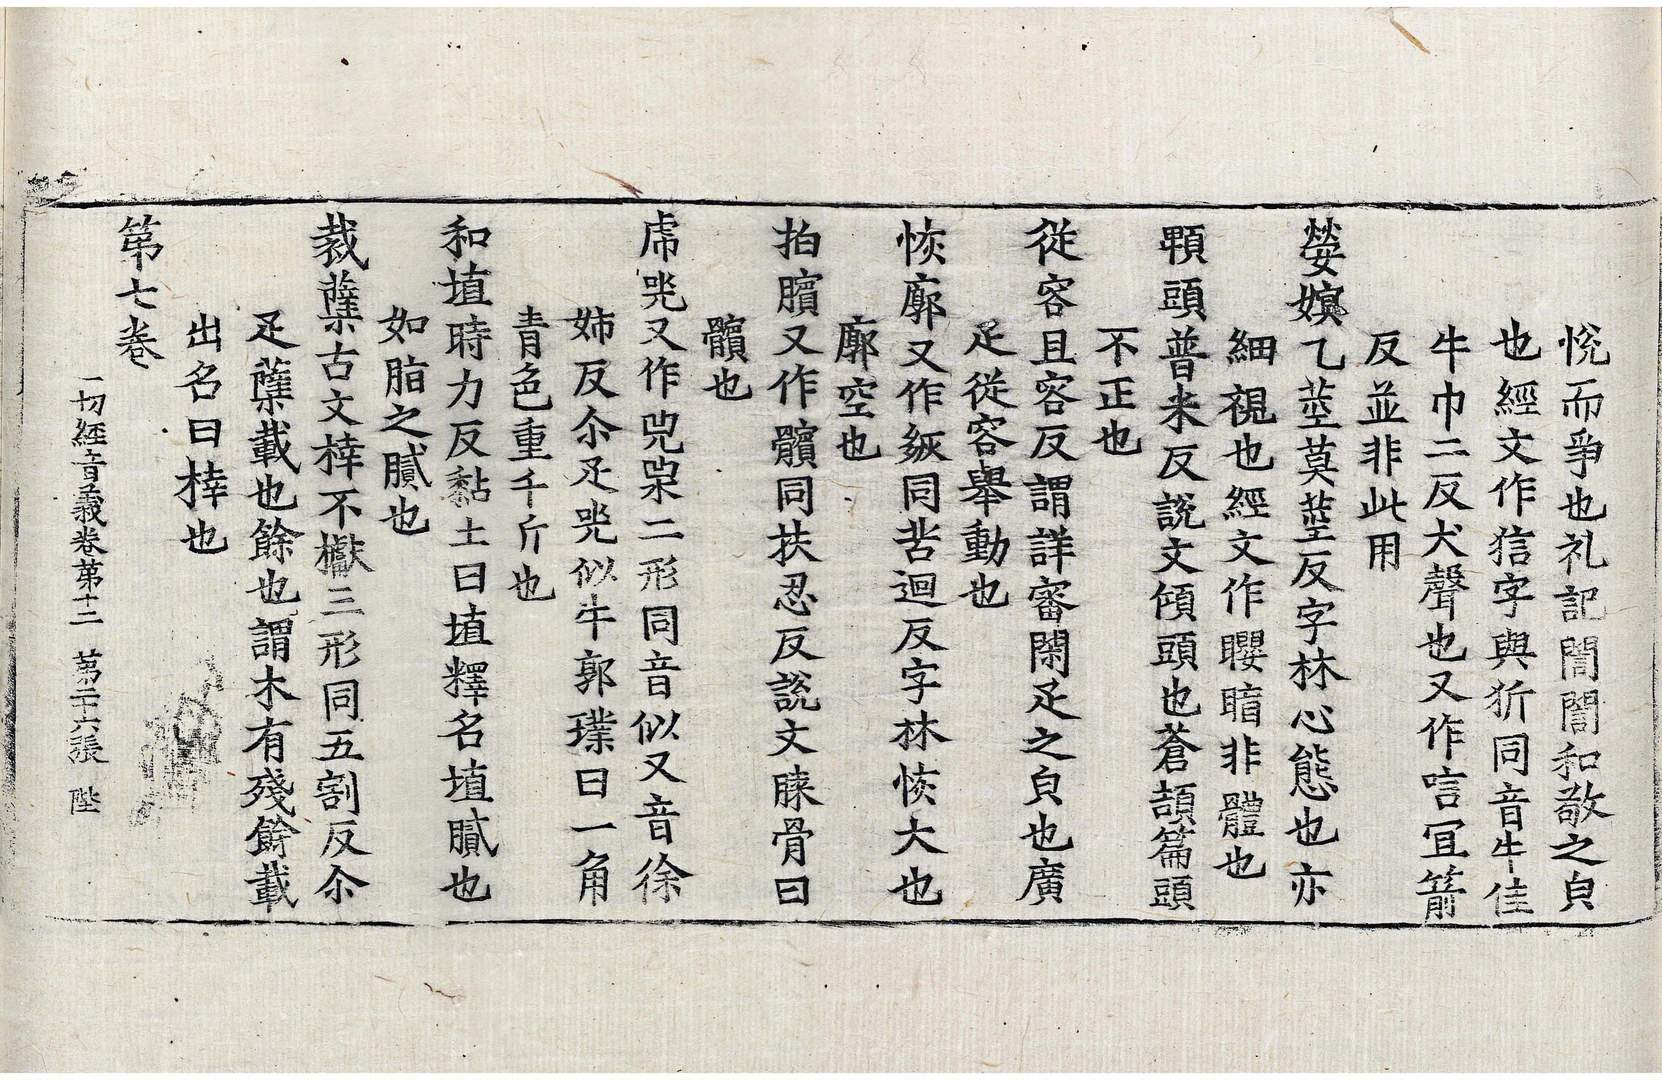 悅而爭也礼記誾誾和敬之皃
也經文作㹞字與狋同音牛佳
牛巾二反犬聲也又作唁冝箭
反並非此用
嫈嫇乙莖莫莖反字林心態也亦
細視也經文作矎睧非體也
頩頭普米反說文傾頭也蒼頡篇頭
不正也
從容且容反謂詳審閑𤴓之皃也廣
𤴓從容舉動也
恢廓又作𥿉同苦迴反字林恢大也
廓空也
拍臏又作髕同扶忍反說文膝骨曰
髕也
虎兕又作兕㺉二形同音似又音徐
姉反尒𤴓兕似牛郭璞曰一角
青色重千斤也
和埴時力反黏土曰埴釋名埴膩也
如脂之膩也
栽蘗古文㮆不櫱三形同五割反尒
𤴓蘗載也餘也謂木有殘餘載
出名曰㮆也
第七卷
一切經音義卷第十二 第二十六張 陛